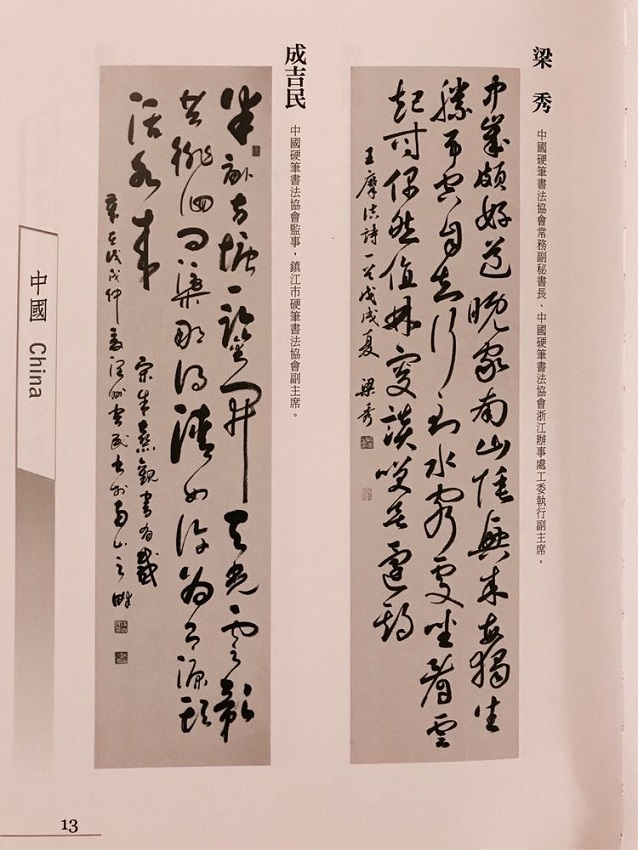 梁 秀
中國硬筆書法協會常務副秘書長、中國硬筆書法協會浙江辦事處工委執行副主席。
中歲頗好道晚家南山陲興來每獨往
勝事空自知行到水窮處坐看雲
起時偶然值林叟談笑無還期
王摩詰詩一首戊戌夏 梁秀
成吉民
中國硬筆書法協會監事，鎮江市硬筆書法協會副主席。
半畝方塘一鑑開天光雲影
共徘徊問渠那得清如許為有源頭
活水來
宋朱熹觀書有感
歲在戊戌仲夏潤州吉民書於南山之畔
中國 China
13